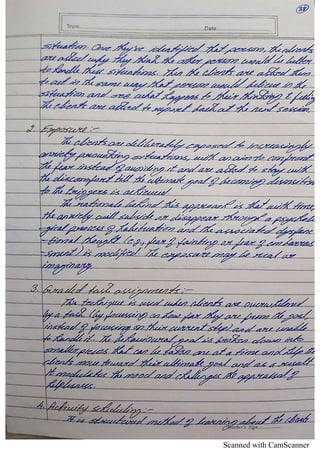 38
Topic
Date
situation. Once they've identified that person, the clients
are asked why they think the other person would be better
to handle their situations. Then the clients are asked them
to act in the same way that person would behave in the
situation and see what happens to their thinking & feeling
The clients are asked to report back at the next session
2. Exposure :-
The clients are deliberately exposed to increasingly
anxiety provoking situations, with an aim to confront
the fear instead of avoiding it and are asked to stay with
the discomfort till the ultimate goal of becoming desensitized
to the triggers is achieved
The rationale behind this approach is that with time,
the anxiety will subside or disappear through a psycholo
gical process of habituation and the associated dysfunc
-tional thought (e.g., fear of fainting or fear of embarras
-sment) is modified. The exposure may be real or
imaginary.
3. Graded task assignments :-
This technique is used when clients are overwhelmed
by a task (by focussing on how far they are from the goal
instead of focussing on their current step) and are unable
to handle it. The behavioural goal is broken down into
smaller pieces that can be taken one at a time and help the
clients move toward their ultimate goal and as a result
it modulates the mood and challenges the appraisal of
helplessness.
4. Activity scheduling :-
It is structured method of learning about the clients
Teacher's Sign
Scanned with CamScanner